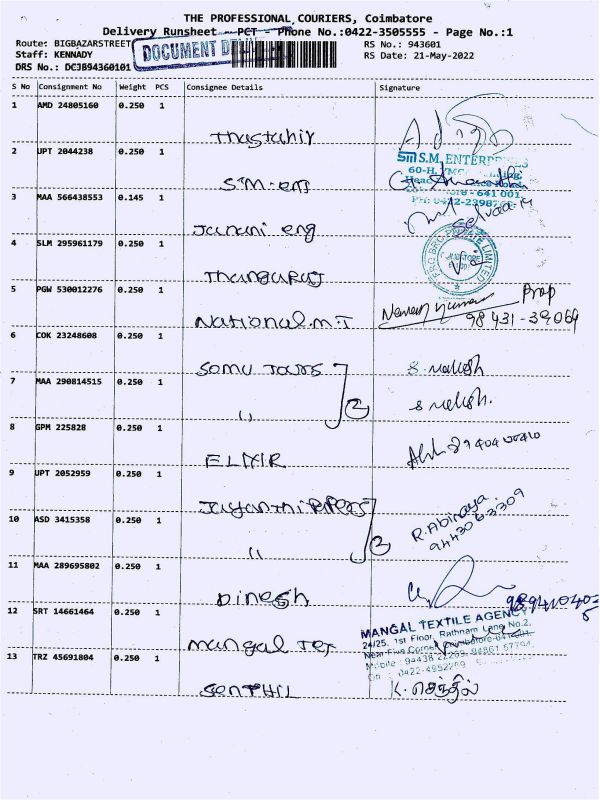 THE PROFESSIONAL COURIERS, Coimbatore
Delivery Runsheet - PCT - Phone No.:0422-3505555 - Page No.:1
Route: BIGBAZARSTREET
RS No.: 943601
Staff: KENNADY
DOCUMENT
RS Date: 21-May-2022
DRS No.: DCJB94360101
S No Consignment No Weight PCS Consignee Details Signature
1 AMD 24805160 0.250 1
Thastahir
2 UPT 2044238 0.250 1
S.M. ENTERPRISES
60-H,
S.M-ent
3 MAA 566438553 0.145 1
641 001.
PH: 0422-2398
Selvaa
Janani eng
4 SLM 295961179 0.250 1
PRIVATE LIMITED
Thanguraj
5 PGW 530012276 0.250 1
Prop
98431-39069
National.m.I
6 COK 23248608 0.250 1
Somu Tours
S. Makesh
2
7 MAA 290814515 0.250 1
S Makesh.
"
8 GPM 225828 0.250 1
ELIXIR
9 UPT 2052959 0.250 1
Jayanthi Papers
R.Abinaya.
9443063309
2
10 ASD 3415358 0.250 1
"
11 MAA 289695802 0.250 1
Dinesh
12 SRT 14661464 0.250 1
MANGAL TEXTILE AGENCY
24/25, 1st Floor, Rathnam Lane No.2,
Mobile : 94438
Mangal Tex
13 TRZ 45691804 0.250 1
0422-4952269
SENTHIL
K. செந்தில்